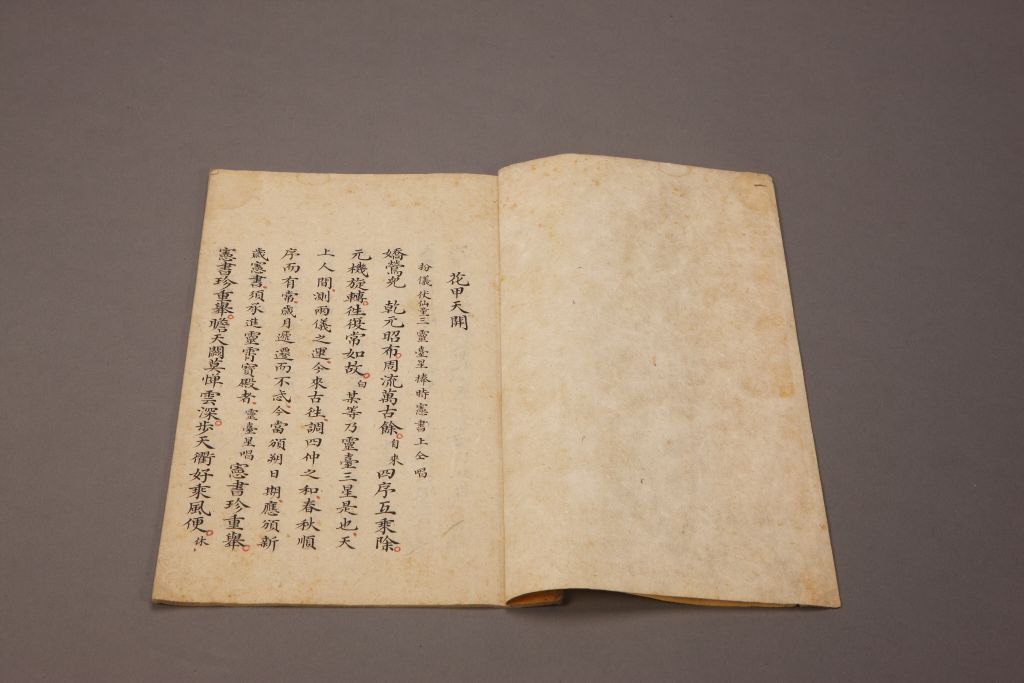 花甲天開
扮儀伏仙童三靈臺星捧時憲書上仝唱
嬌鶯兒 乾元昭布周流萬古餘自來四序互乘除
元機旋轉往復常如故白某等乃靈臺三星是也天
上人間測兩儀之運今來古往調四仲之和春秋順
序而有常歲月遞遷而不忒今當頒朔日期應頒新
歲憲書須承進靈霄寶殿者靈臺星唱憲書珍重舉
憲書珍重舉瞻天闕莫憚雲深步天衢好乘風便